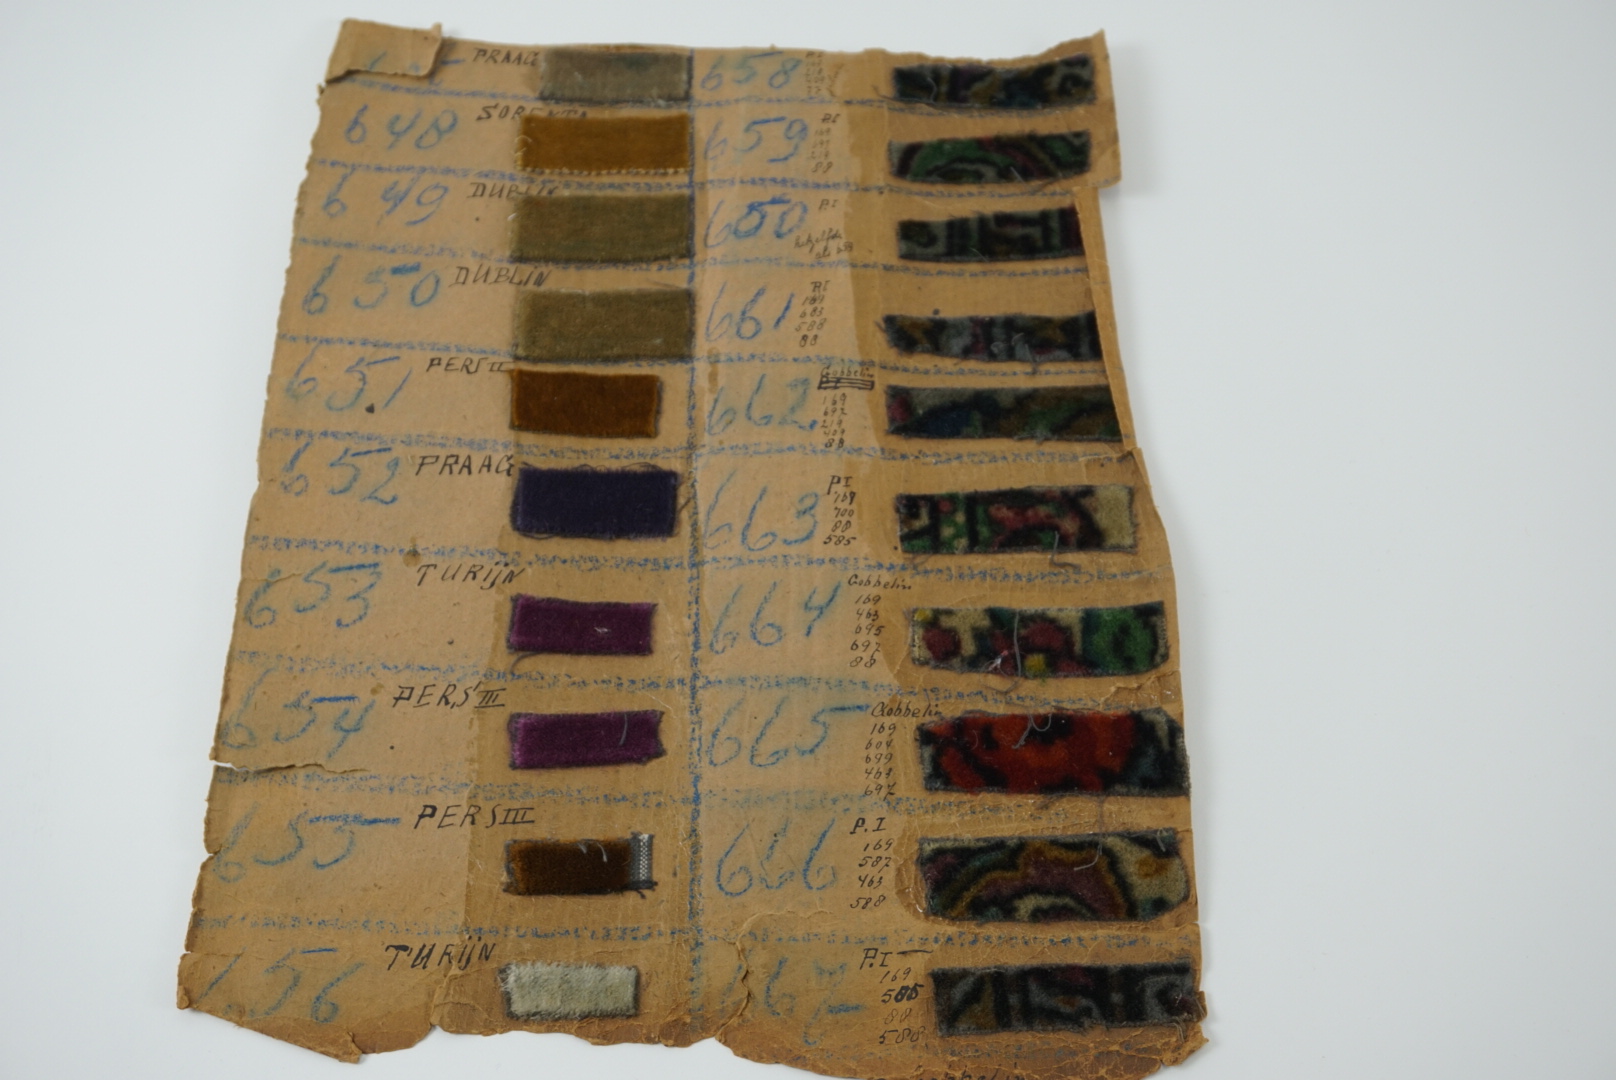 PRAAG
648 SORENTO
649 DUBLIN
650 DUBLIN
651 PERS II
652 PRAAG
653 TURIJN
654 PERS III
655 PERS III
656 TURIJN
658
659 P.I
169
88
650 P.I
hetzelfde
als
661 P.I
169
683
588
88
662 Gobbelin
169
697
219
88
663 P.I
169
700
88
585
664 Gobbelin
169
463
695
697
88
665 Gobbelin
169
604
699
463
697
666 P.I
169
587
463
588
P.I
169
585
88
588